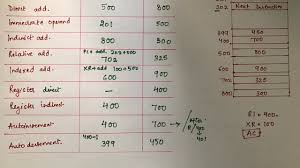 Direct add. 500 800
Immediate operand 201 500
Indirect add. 800 300
Relative add. PC + add. 202+500 702 325
Indexed add. XR + add 100+500 600 900
Register direct — 400
Register indirect 400 700
Autoincrement 400 700
Auto decrement 400-1 399 450
202 Next Instruction
399 450
400 700
500 800
600 900
702 325
800 300
R1 = 400
XR = 100
AC